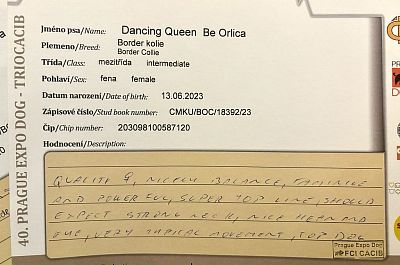 40. PRAGUE EXPO DOG - TRIOCACIB
Jméno psa/Name: Dancing Queen Be Orlica
Plemeno/Breed: Border kolie
Border Collie
Třída/Class: mezitřída intermediate
Pohlaví/Sex: fena female
Datum narození/Date of birth: 13.06.2023
Zápisové číslo/Stud book number: CMKU/BOC/18392/23
Čip/Chip number: 203098100587120
Hodnocení/Description:
QUALITY ♀, NICELY BALANCE, FAMININE
AND POWERFUL, SUPER TOP LINE, SHOULD
EXPECT STRONG NECK, NICE HEAD AND
EYE, VERY TYPICAL MOVEMENT, TOP DOG
Prague Expo Dog
FCI CACIB